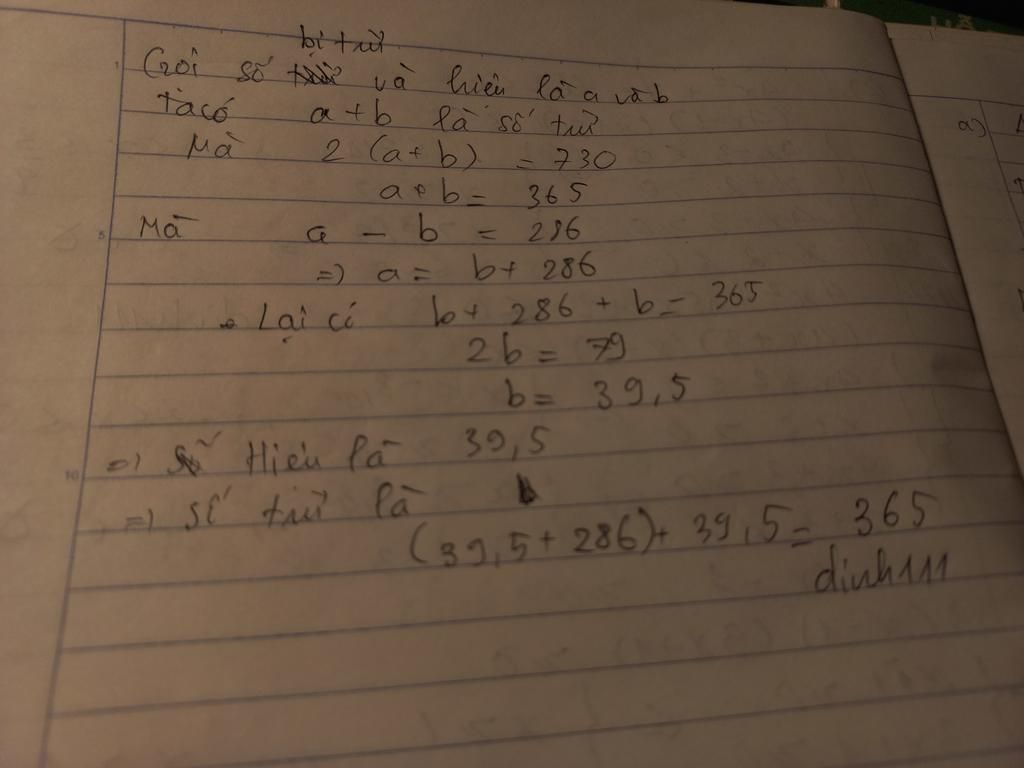 bị trừ
Gọi số và hiệu là a và b
Ta có a+b là số trừ
Mà 2 (a+b) = 730
a+b= 365
Mà a - b = 286
=) a= b+ 286
Lại có b+ 286 + b= 365
2b= 79
b= 39,5
=) Hiệu là 39,5
=) Số trừ là
(39,5+286)+ 39,5= 365
dinh111
a)